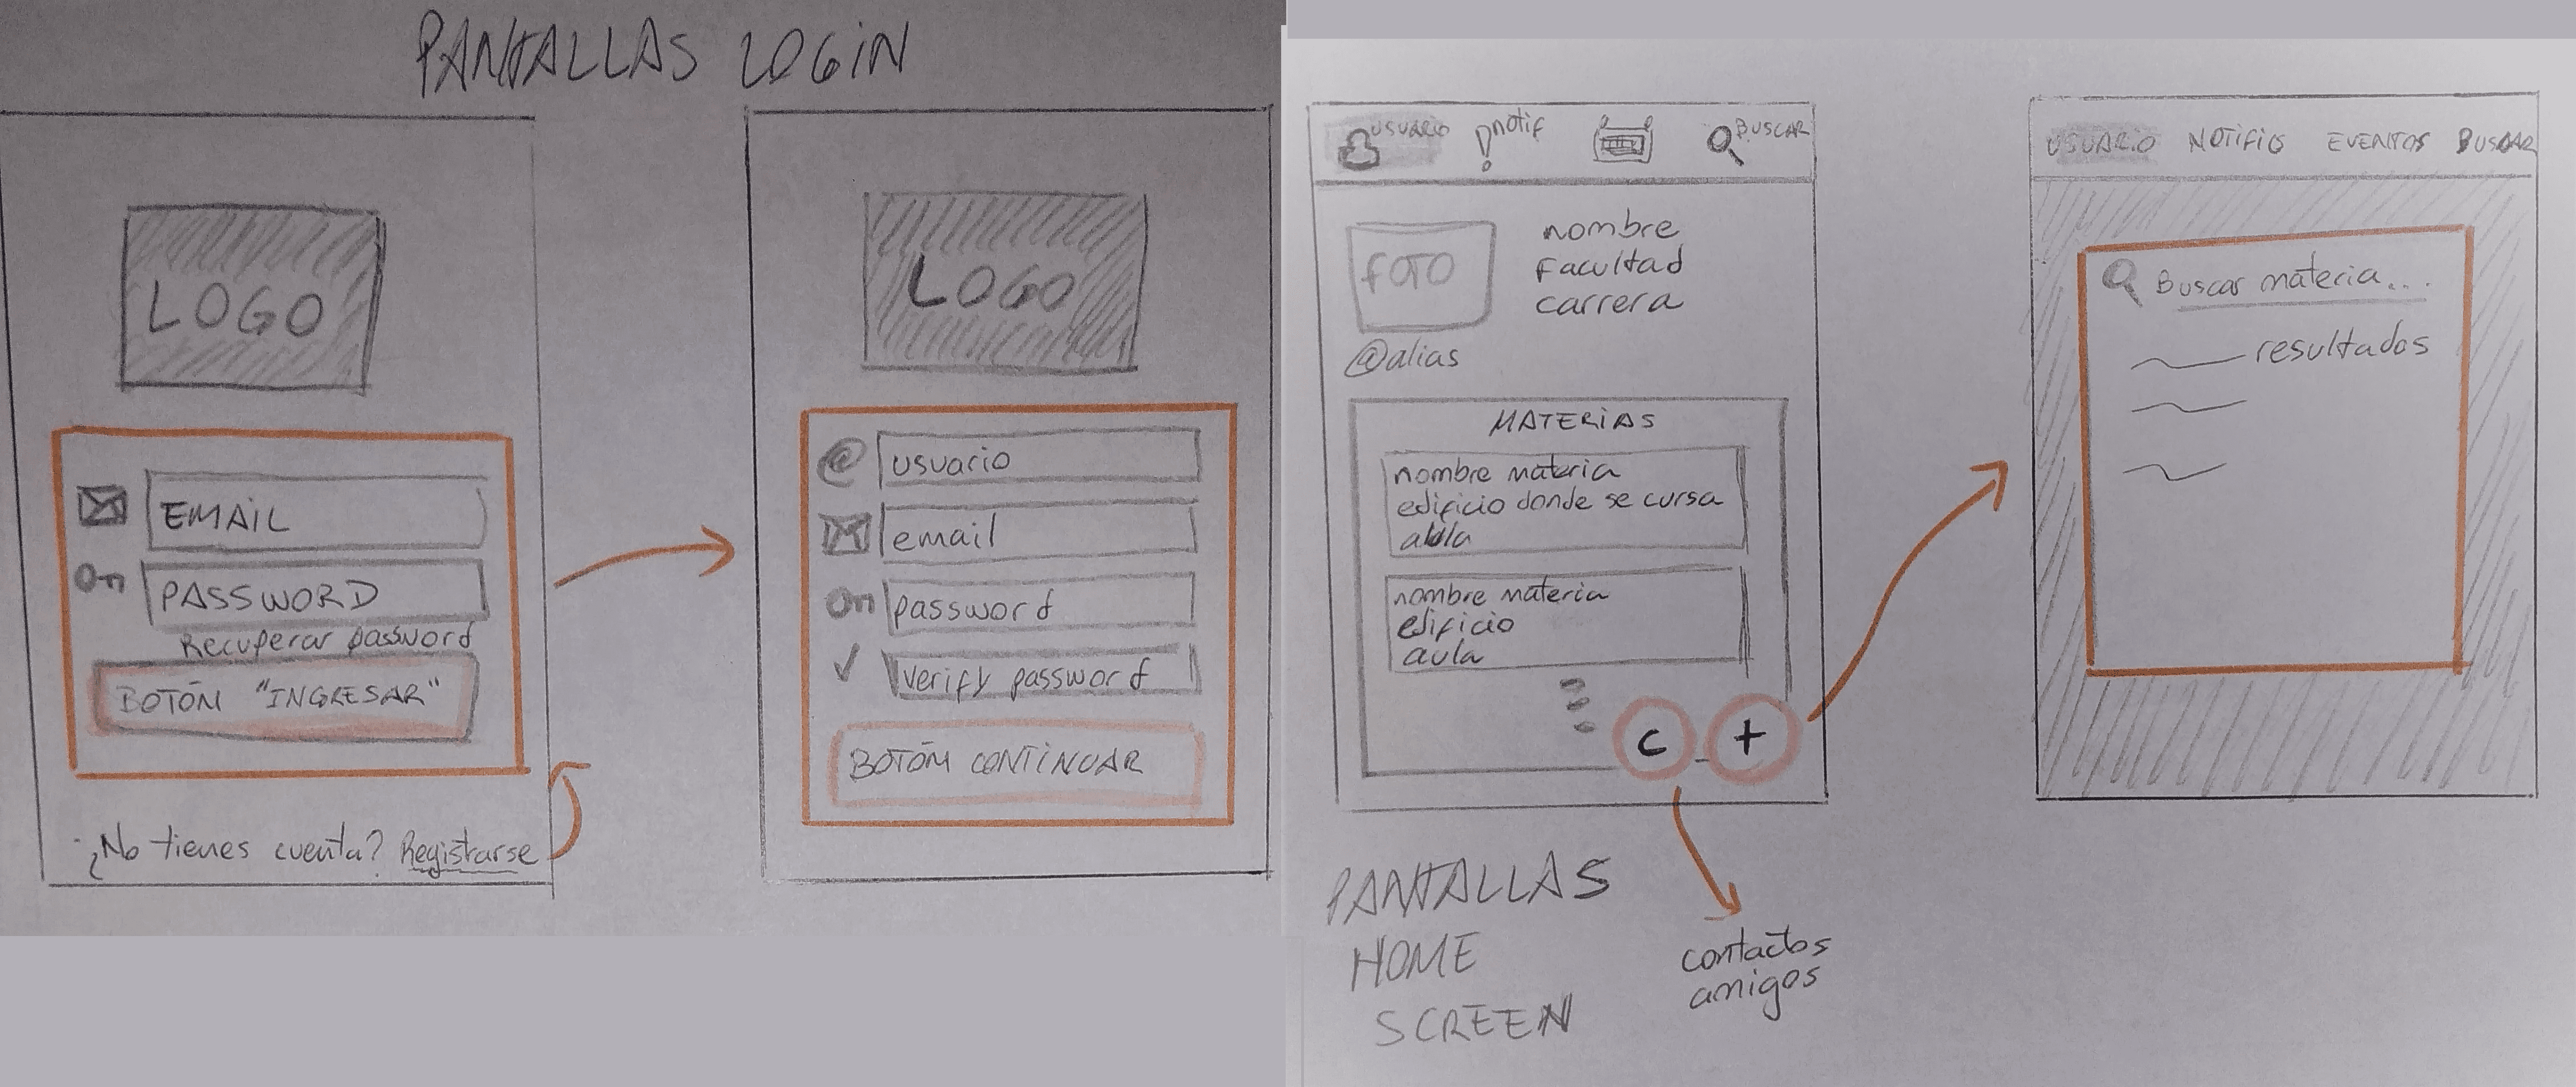 PANTALLAS LOGIN
LOGO
EMAIL
PASSWORD
Recuperar password
BOTÓN "INGRESAR"
¿No tienes cuenta? Registrarse
LOGO
@ usuario
email
password
verify password
BOTÓN CONTINUAR
USUARIO
notif
BUSCAR
FOTO
nombre
Facultad
carrera
@alias
MATERIAS
nombre materia
edificio donde se cursa
aula
nombre materia
edificio
aula
C +
PANTALLAS
HOME
SCREEN
contactos
amigos
USUARIO NOTIFIC EVENTOS BUSCAR
Buscar materia...
resultados